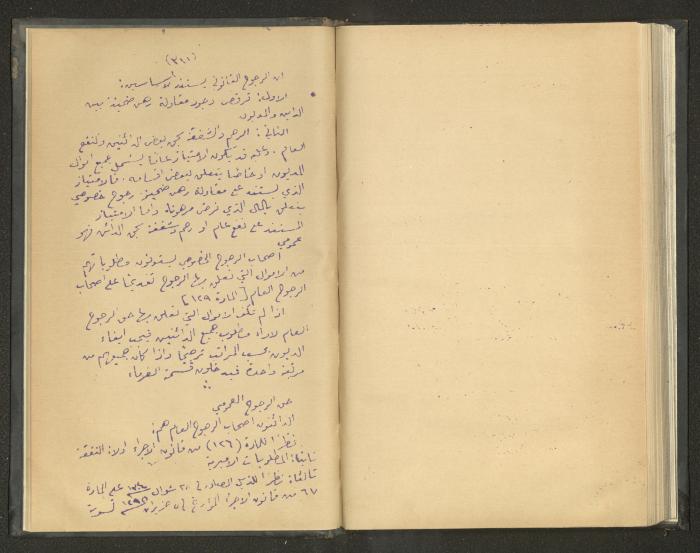 (٣١١)
ان الرجوع القانوني يستند لأساسين:
الاول: فرض وجود مقاولة رهن ضمنية بين
الدائن والمديون
الثاني: الرحم والشفقة بحق بعض الدائنين والنفع
العام. وعليه قد يكون الامتياز عاما يشمل جميع اموال
المديون او خاصا يتعلق ببعض اقسامه. فالامتياز
الذي يستند على مقاولة رهن ضمنية رجوع خصوصي
يتعلق بالمال الذي فرض مرهونا. واما الامتياز
المستند على نفع عام او رحم وشفقة بحق الدائن فهو
عمومي
اصحاب الرجوع الخصوصي يستوفون مطلوباتهم
من الاموال التي تعلق بها الرجوع تقديما على اصحاب
الرجوع العام [المادة ١٢٩]
اذا لم تكف الاموال التي تعلق بها حق الرجوع
العام لاداء مطلوب جميع الدائنين فيجب ايفاء
الديون بحسب المراتب ترجيحا واذا كان جميعهم من
مرتبة واحدة فيدخلون قسمة الغرماء
حق الرجوع العمومي
الدائنون اصحاب الرجوع العام هم:
نظرا للمادة (١٢٦) من قانون الاجراء اولا: النفقة
ثانيا: المطلوبات الاميرية
ثالثا: نظرا للذيل الصادر في ٢٠ شوال على المادة
٦٧ من قانون الاجراء المؤرخ في حزيران